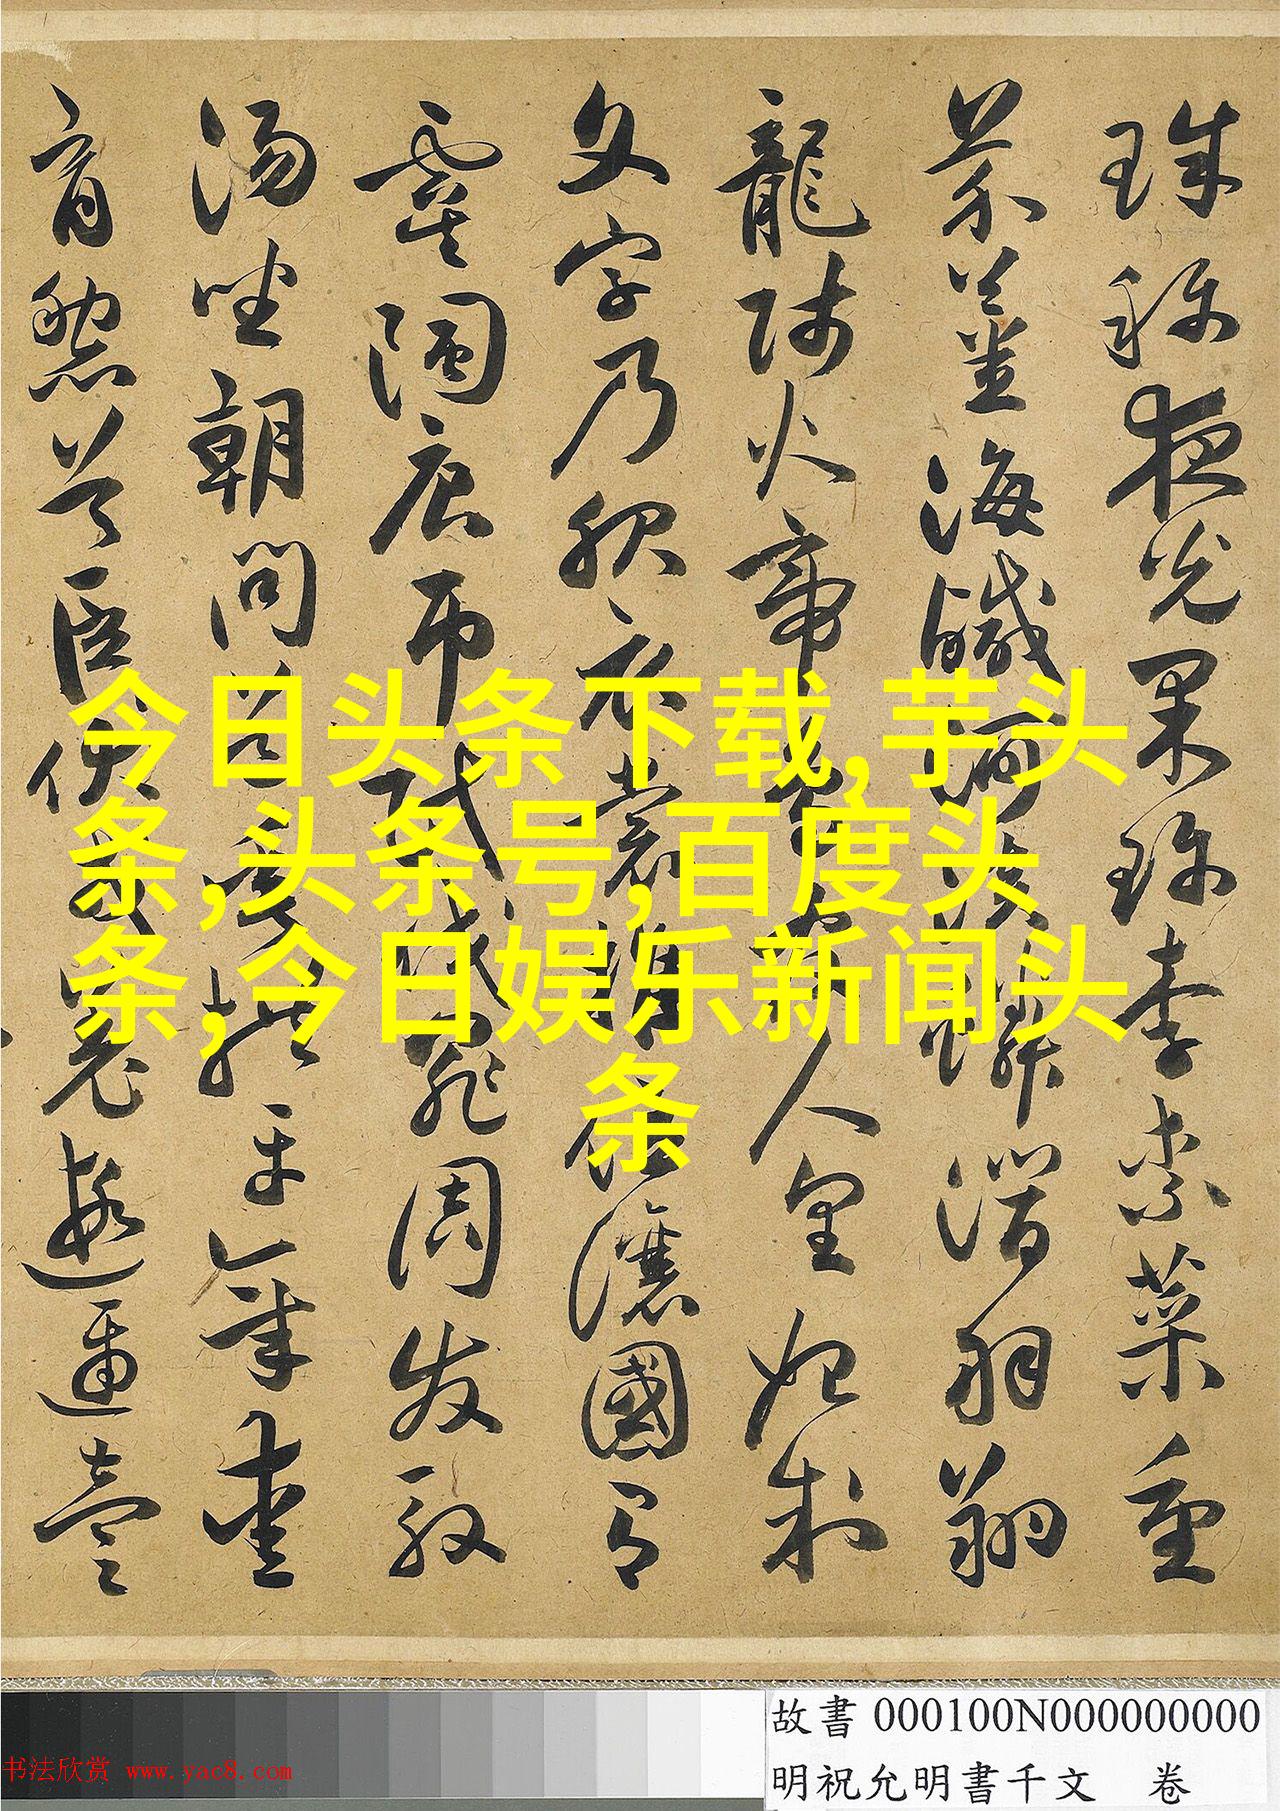 珠稱夜光果珍李柰菜重
芥薑海鹹河淡鱗潛羽翔
龍師火帝鳥官人皇始制
文字乃服衣裳推位讓國有
虞陶唐弔民伐罪周發殷
湯坐朝問道垂拱平章愛
育黎首臣伏戎羌遐邇壹
今日头条下载,芋头
条,头条号,百度头
条,今日娱乐新闻头
条
故書 000100N000000000
明祝允明書千文 卷
书法欣赏 www.yac8.com